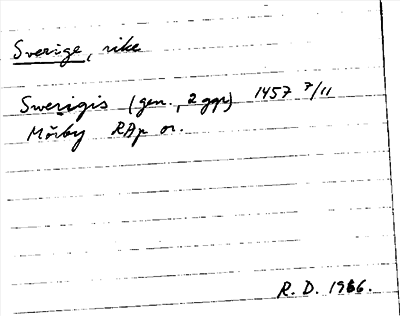 Sverige, rike
Swerigis (gen., 2 ggr) 1457 7/11
Mörby RAp or.
R. D. 1966.